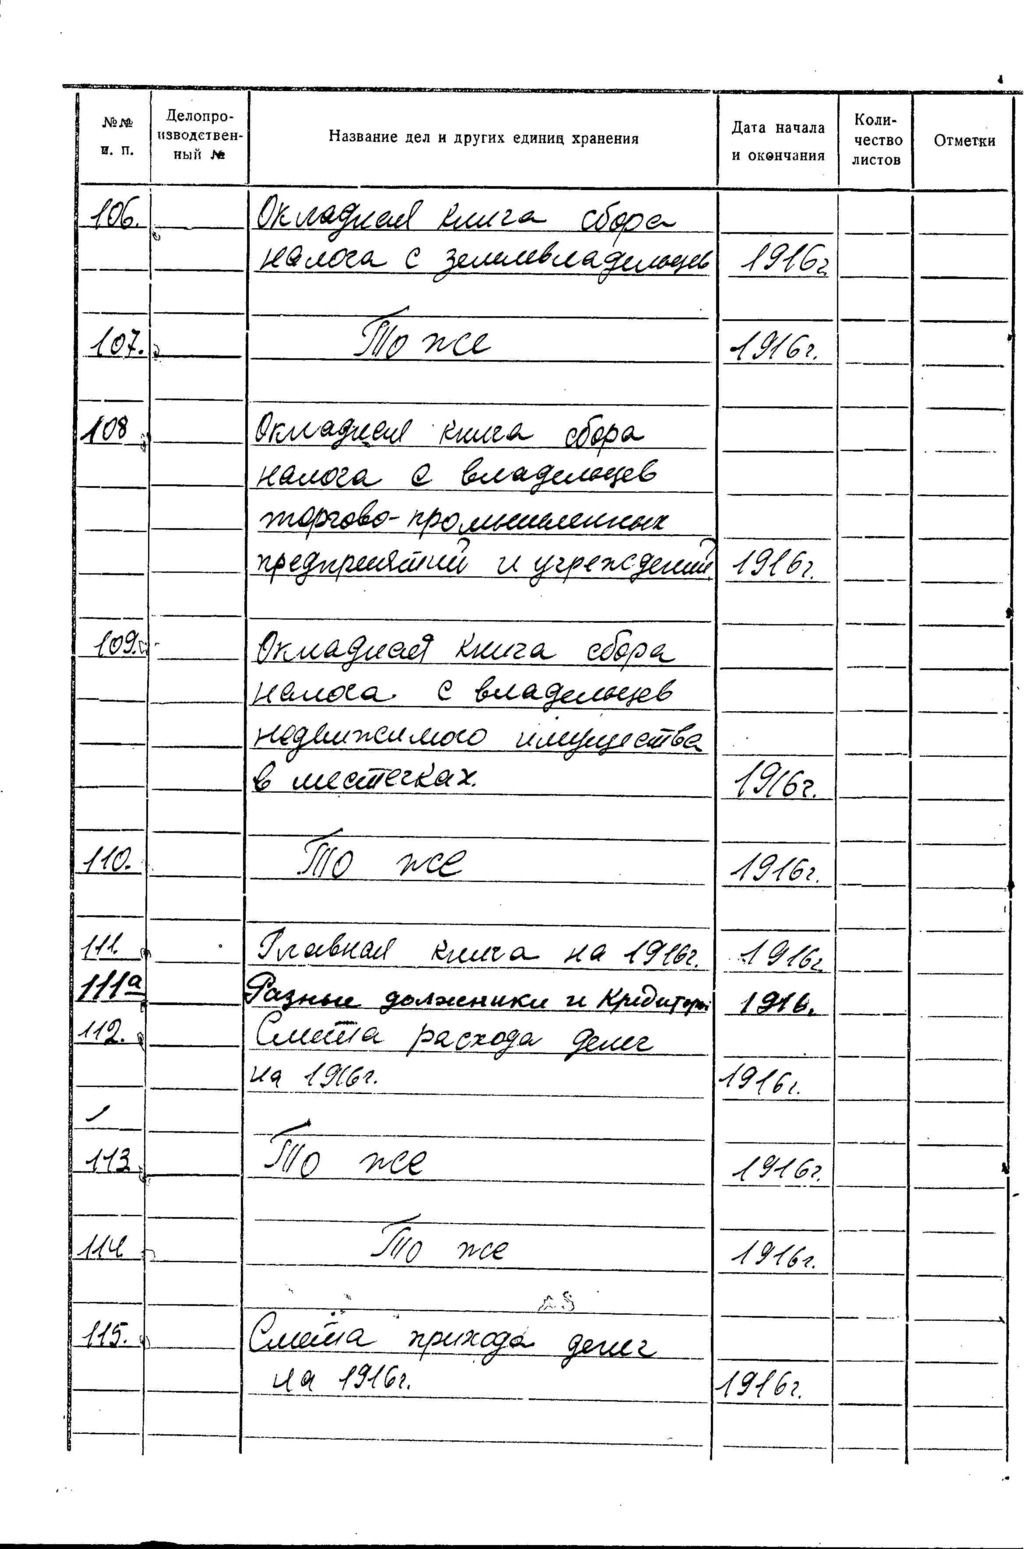 №№ п. п. | Делопроизводственный № | Название дел и других единиц хранения | Дата начала и окончания | Количество листов | Отметки
106. Окладная книга сбора
налога с землевладельцев 1916г
107. То же 1916г.
108 Окладная книга сбора
налога с владельцев
торгово-промышленных
предприятий и учреждений 1916г.
109. Окладная книга сбора
налога с владельцев
недвижимого имущества
в местечках. 1916г.
110. То же 1916г.
111. Главная книга на 1916г. 1916г
111а Разные должники и Кредиторы 1916.
112. Смета расхода денег
на 1916г. 1916г.
113. То же 1916г.
114 То же 1916г.
115. Смета прихода денег
на 1916г. 1916г.